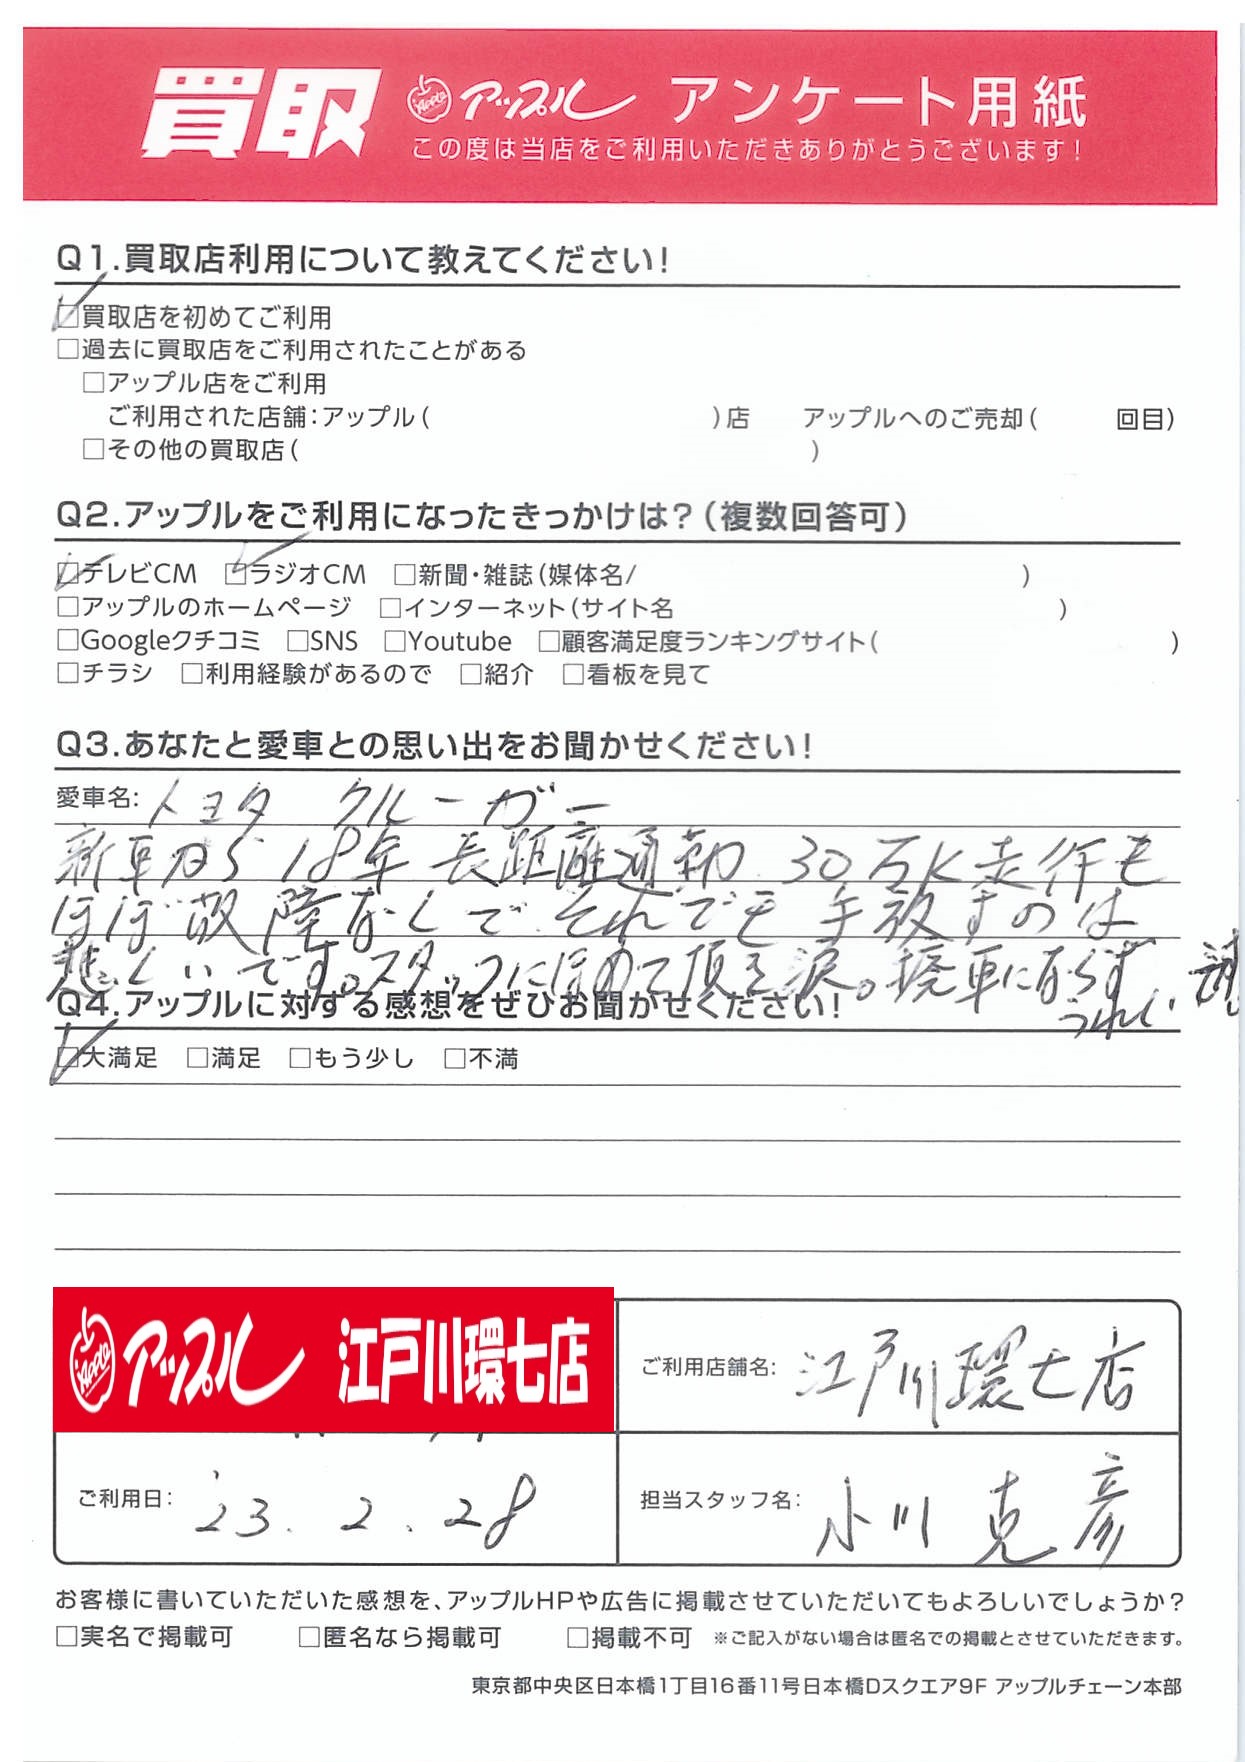 買取 Apple アップル アンケート用紙
この度は当店をご利用いただきありがとうございます！
Q1.買取店利用について教えてください！
☑買取店を初めてご利用
□過去に買取店をご利用されたことがある
□アップル店をご利用
ご利用された店舗：アップル（ ）店 アップルへのご売却（ 回目）
□その他の買取店（ ）
Q2.アップルをご利用になったきっかけは？（複数回答可）
☑テレビCM ☑ラジオCM □新聞・雑誌（媒体名/ ）
□アップルのホームページ □インターネット（サイト名 ）
□Googleクチコミ □SNS □Youtube □顧客満足度ランキングサイト（ ）
□チラシ □利用経験があるので □紹介 □看板を見て
Q3.あなたと愛車との思い出をお聞かせください！
愛車名：トヨタ クルーガー
新車から18年 長距離通勤 30万K走行も
ほぼ故障なしで それでも手放すのは
悲しいです。スタッフにほめて頂き涙。廃車にならず
うれしい
Q4.アップルに対する感想をぜひお聞かせください！
☑大満足 □満足 □もう少し □不満
Apple アップル 江戸川環七店
ご利用店舗名：江戸川環七店
ご利用日：'23.2.28
担当スタッフ名：小川 克彦
お客様に書いていただいた感想を、アップルHPや広告に掲載させていただいてもよろしいでしょうか？
□実名で掲載可 □匿名なら掲載可 □掲載不可 ※ご記入がない場合は匿名での掲載とさせていただきます。
東京都中央区日本橋1丁目16番11号日本橋Dスクエア9F アップルチェーン本部